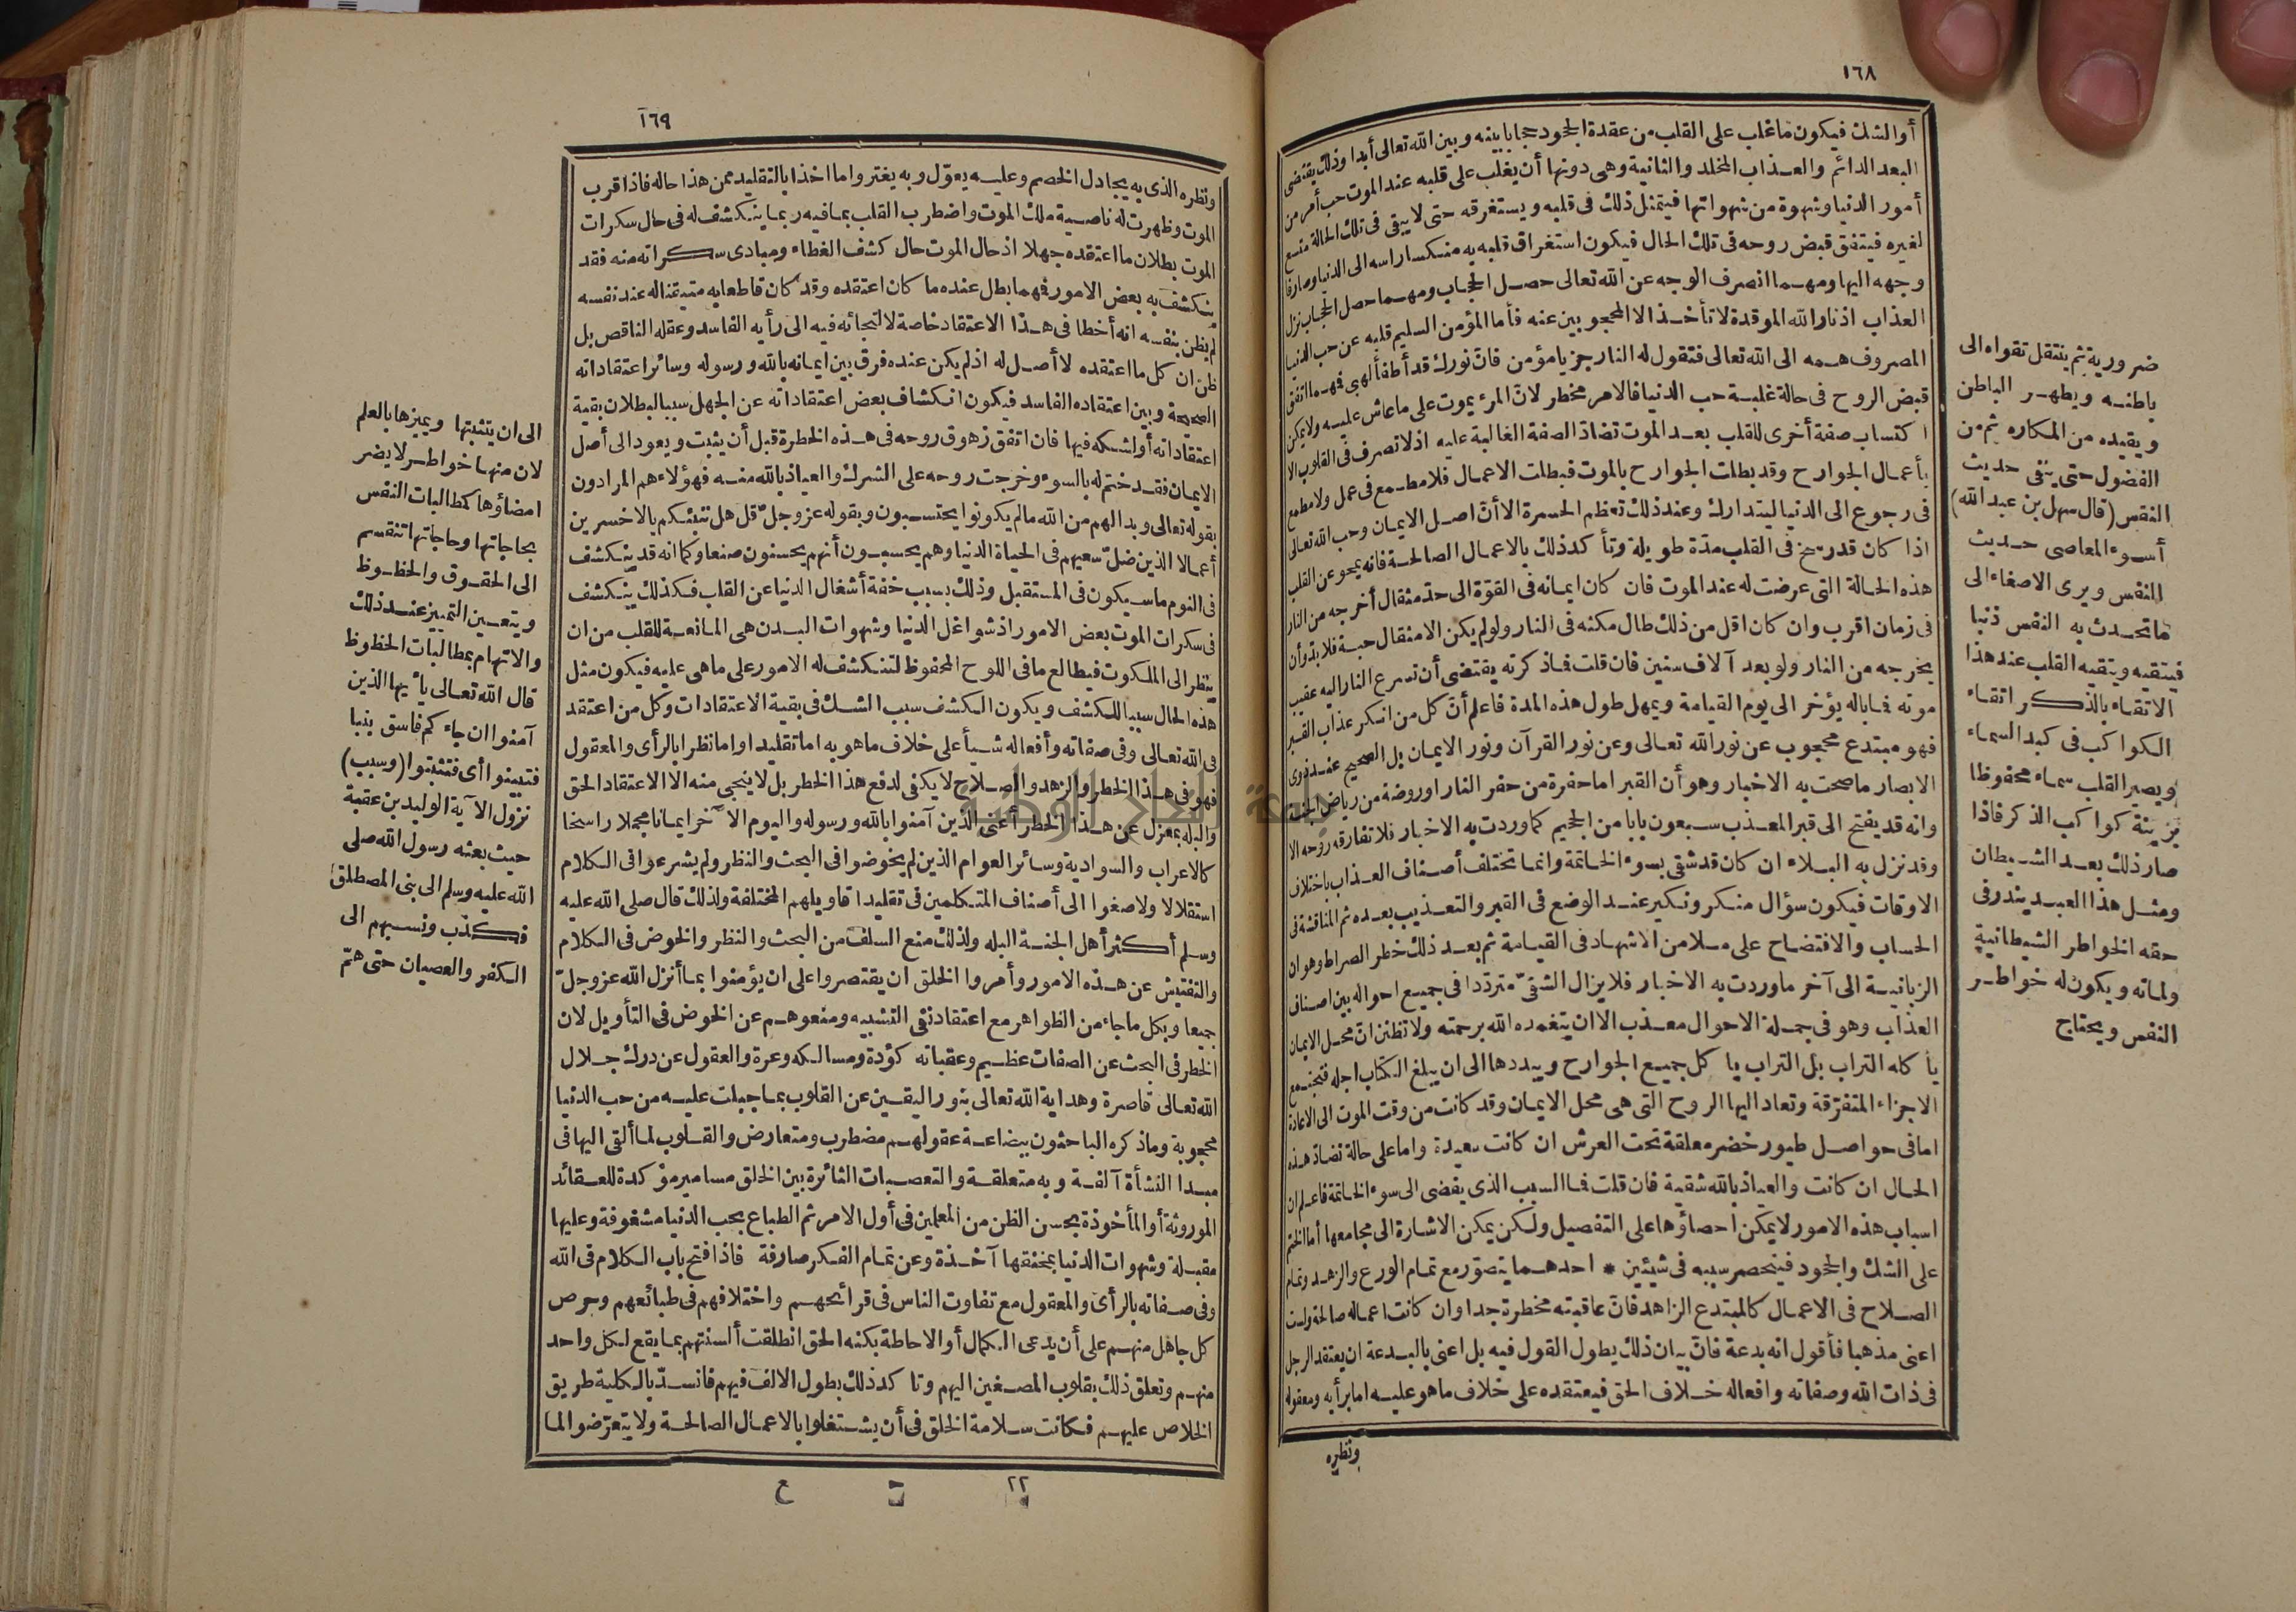 ١٦٨
أو الشك فيكون ما غلب على القلب من عقدة الجحود حجابا بينه وبين الله تعالى أبدا وذلك يقتضى
البعد الدائم والعذاب المخلد والثانية وهى دونها أن يغلب على قلبه عند الموت حب أمر من
أمور الدنيا وشهوة من شهواتها فيتمثل ذلك فى قلبه ويستغرقه حتى لا يبقى فى تلك الحالة متسع
لغيره فيتفق قبض روحه فى تلك الحال فيكون استغراق قلبه به منكسا رأسه الى الدنيا وصارفا
وجهه اليها ومهما انصرف الوجه عن الله تعالى حصل الحجاب ومهما حصل الحجاب نزل
العذاب اذ نار الله الموقدة لا تأخذ الا المحجوبين عنه فأما المؤمن السليم قلبه عن حب الدنيا
المصروف همه الى الله تعالى فتقول له النار جز يا مؤمن فان نورك قد أطفأ لهبى فهما اتفق
قبض الروح فى حالة غلبة حب الدنيا فالامر مخطر لان المرء يموت على ما عاش عليه ولا يمكن
اكتساب صفة أخرى للقلب بعد الموت تضاد الصفة الغالبة عليه اذ لا تصرف فى القلوب الا
بأعمال الجوارح وقد بطلت الجوارح بالموت فبطلت الاعمال فلا مطمع فى عمل ولا مطمع
فى رجوع الى الدنيا ليتدارك وعند ذلك تعظم الحسرة الا أن اصل الايمان وحب الله تعالى
اذا كان قد رسخ فى القلب مدّة طويلة وتأكد ذلك بالاعمال الصالحة فانه يمحو عن القلب
هذه الحالة التى عرضت له عند الموت فان كان ايمانه فى القوّة الى حدّ مثقال أخرجه من النار
فى زمان اقرب وان كان اقل من ذلك طال مكثه فى النار ولو لم يكن الا مثقال حبة فلا بدّ وأن
يخرجه من النار ولو بعد آلاف سنين فان قلت فما ذكرته يقتضى أن تسرع النار اليه عقيب
موته فما باله يؤخر الى يوم القيامة ويمهل طول هذه المدة فاعلم أنّ كل من انكر عذاب القبر
فهو مبتدع محجوب عن نور الله تعالى وعن نور القرآن ونور الايمان بل الصحيح عند ذوى
الابصار ما صحت به الاخبار وهو أن القبر اما حفرة من حفر النار او روضة من رياض الجنة
وانه قد يفتح الى قبر المعذب سبعون بابا من الجحيم كما وردت به الاخبار فلا تفارقه روحه الا
وقد نزل به البلاء ان كان قد شقى بسوء الخاتمة وانما تختلف أصناف العذاب باختلاف
الاوقات فيكون سؤال منكر ونكير عند الوضع فى القبر والتعذيب بعده ثم المناقشة فى
الحساب والافتضاح على ملا من الاشهاد فى القيامة ثم بعد ذلك خطر الصراط وهوان
الزبانية الى آخر ما وردت به الاخبار فلا يزال الشقىّ متردّدا فى جميع احواله بين اصناف
العذاب وهو فى جملة الاحوال معذب الا ان يتغمده الله برحمته ولا تظنن ان محل الايمان
يأكله التراب بل التراب يأكل جميع الجوارح ويبددها الى ان يبلغ الكتاب اجله فتجتمع
الاجزاء المتفرّقة وتعاد اليها الروح التى هى محل الايمان وقد كانت من وقت الموت الى الاعادة
اما فى حواصل طيور خضر معلقة تحت العرش ان كانت سعيدة واما على حالة تضادّ هذه
الحال ان كانت والعياذ بالله شقية فان قلت فما السبب الذى يفضى الى سوء الخاتمة فاعلم ان
اسباب هذه الامور لا يمكن احصاؤها على التفصيل ولكن يمكن الاشارة الى مجامعها أما الختم
على الشك والجحود فينحصر سببه فى شيئين * احدهما يتصوّر مع تمام الورع والزهد وتمام
الصلاح فى الاعمال كالمبتدع الزاهد فانّ عاقبته مخطرة جدا وان كانت اعماله صالحة ولست
اعنى مذهبا فأقول انه بدعة فانّ بيان ذلك يطول القول فيه بل اعنى بالبدعة ان يعتقد الرجل
فى ذات الله وصفاته وافعاله خلاف الحق فيعتقده على خلاف ما هو عليه اما برأيه ومعقوله
ونظره
ضرورية ثم ينتقل تقواه الى
باطنه ويطهر الباطن
ويقيده من المكاره ثم من
الفضول حتى يتقى حديث
النفس (قال سهل بن عبد الله)
أسوء المعاصى حديث
النفس ويرى الاصغاء الى
ما تحدث به النفس ذنبا
فيتقيه ويتقيه القلب عند هذا
الاتقاء بالذكر اتقاء
الكواكب فى كبد السماء
ويصير القلب سماء محفوظا
بزينة كواكب الذكر فاذا
صار ذلك بعد الشيطان
ومثل هذا العبد يندر فى
حقه الخواطر الشيطانية
ولماته ويكون له خواطر
النفس ويحتاج
١٦٩
ونظره الذى به يجادل الخصم وعليه يعوّل وبه يغتر واما اخذا بالتقليد ممن هذا حاله فاذا قرب
الموت وظهرت له ناصية ملك الموت واضطرب القلب بما فيه ربما ينكشف له فى حال سكرات
الموت بطلان ما اعتقده جهلا اذ حال الموت حال كشف الغطاء ومبادى سكراته منه فقد
ينكشف به بعض الامور فهما بطل عنده ما كان اعتقده وقد كان قاطعا به متيقنا له عند نفسه
لم يظن بنفسه انه أخطأ فى هذا الاعتقاد خاصة لالتجائه فيه الى رأيه الفاسد وعقله الناقص بل
ظن ان كل ما اعتقده لا أصل له اذ لم يكن عنده فرق بين ايمانه بالله ورسوله وسائر اعتقاداته
الصحيحة وبين اعتقاده الفاسد فيكون انكشاف بعض اعتقاداته عن الجهل سببا لبطلان بقية
اعتقاداته أو لشكه فيها فان اتفق زهوق روحه فى هذه الخطرة قبل أن يثبت ويعود الى أصل
الايمان فقد ختم له بالسوء وخرجت روحه على الشرك والعياذ بالله منه فهؤلاء هم المرادون
بقوله تعالى وبدا لهم من الله ما لم يكونوا يحتسبون وبقوله عز وجلّ قل هل ننبئكم بالاخسرين
أعمالا الذين ضلّ سعيهم فى الحياة الدنيا وهم يحسبون أنهم يحسنون صنعا وكما انه قد ينكشف
فى النوم ما سيكون فى المستقبل وذلك بسبب خفة أشغال الدنيا عن القلب فكذلك ينكشف
فى سكرات الموت بعض الامور اذ شواغل الدنيا وشهوات البدن هى المانعة للقلب من ان
ينظر الى الملكوت فيطالع ما فى اللوح المحفوظ لتنكشف له الامور على ما هى عليه فيكون مثل
هذه الحال سببا للكشف ويكون الكشف سبب الشك فى بقية الاعتقادات وكل من اعتقد
فى الله تعالى وفى صفاته وأفعاله شيأ على خلاف ما هو به اما تقليدا واما نظرا بالرأى والمعقول
فهو فى هذا الخطر والزهد والصلاح لا يكفى لدفع هذا الخطر بل لا ينجى منه الا الاعتقاد الحق
والبله بمعزل عن هذا الخطر أعنى الذين آمنوا بالله ورسوله واليوم الآخر ايمانا مجملا راسخا
كالاعراب والسوادية وسائر العوام الذين لم يخوضوا فى البحث والنظر ولم يشرعوا فى الكلام
استقلالا ولا صغوا الى أصناف المتكلمين فى تقليد اقاويلهم المختلفة ولذلك قال صلى الله عليه
وسلم أكثر أهل الجنة البله ولذلك منع السلف من البحث والنظر والخوض فى الكلام
والتفتيش عن هذه الامور وأمروا الخلق ان يقتصروا على ان يؤمنوا بما أنزل الله عز وجلّ
جميعا وبكل ما جاء من الظواهر مع اعتقاد نفى التشبيه ومنعوهم عن الخوض فى التأويل لان
الخطر فى البحث عن الصفات عظيم وعقباته كؤدة ومسالكه وعرة والعقول عن درك جلال
الله تعالى قاصرة وهداية الله تعالى بنور اليقين عن القلوب بما جبلت عليه من حب الدنيا
محجوبة وما ذكره الباحثون ببضاعة عقولهم مضطرب ومتعارض والقلوب لما ألقى اليها فى
مبدا النشأة آلفة وبه متعلقة والتعصبات الثائرة بين الخلق مسامير مؤكدة للعقائد
الموروثة أو المأخوذة بحسن الظن من المعلمين فى أول الامر ثم الطباع بحب الدنيا مشغوفة وعليها
مقبلة وشهوات الدنيا بمخنقها آخذة وعن تمام الفكر صارفة فاذا فتح باب الكلام فى الله
وفى صفاته بالرأى والمعقول مع تفاوت الناس فى قرائحهم واختلافهم فى طبائعهم وحرص
كل جاهل منهم على أن يدّعى الكمال أو الاحاطة بكنه الحق انطلقت ألسنتهم بما يقع لكل واحد
منهم وتعلق ذلك بقلوب المصغين اليهم وتأكد ذلك بطول الالف فيهم فانسدّ بالكلية طريق
الخلاص عليهم فكانت سلامة الخلق فى أن يشتغلوا بالاعمال الصالحة ولا يتعرّضوا لما
الى ان يتثبتها ويميزها بالعلم
لان منها خواطر لا يضر
امضاؤها كمطالبات النفس
بحاجاتها وحاجاتها تنقسم
الى الحقوق والحظوظ
ويتعين التمييز عند ذلك
والاتهام بمطالبات الحظوظ
قال الله تعالى يأيها الذين
آمنوا ان جاءكم فاسق بنبا
فتبينوا أى فتثبتوا (وسبب)
نزول الآية الوليد بن عقبة
حيث بعثه رسول الله صلى
الله عليه وسلم الى بنى المصطلق
فكذب ونسبهم الى
الكفر والعصيان حتى همّ
٢٢ ع